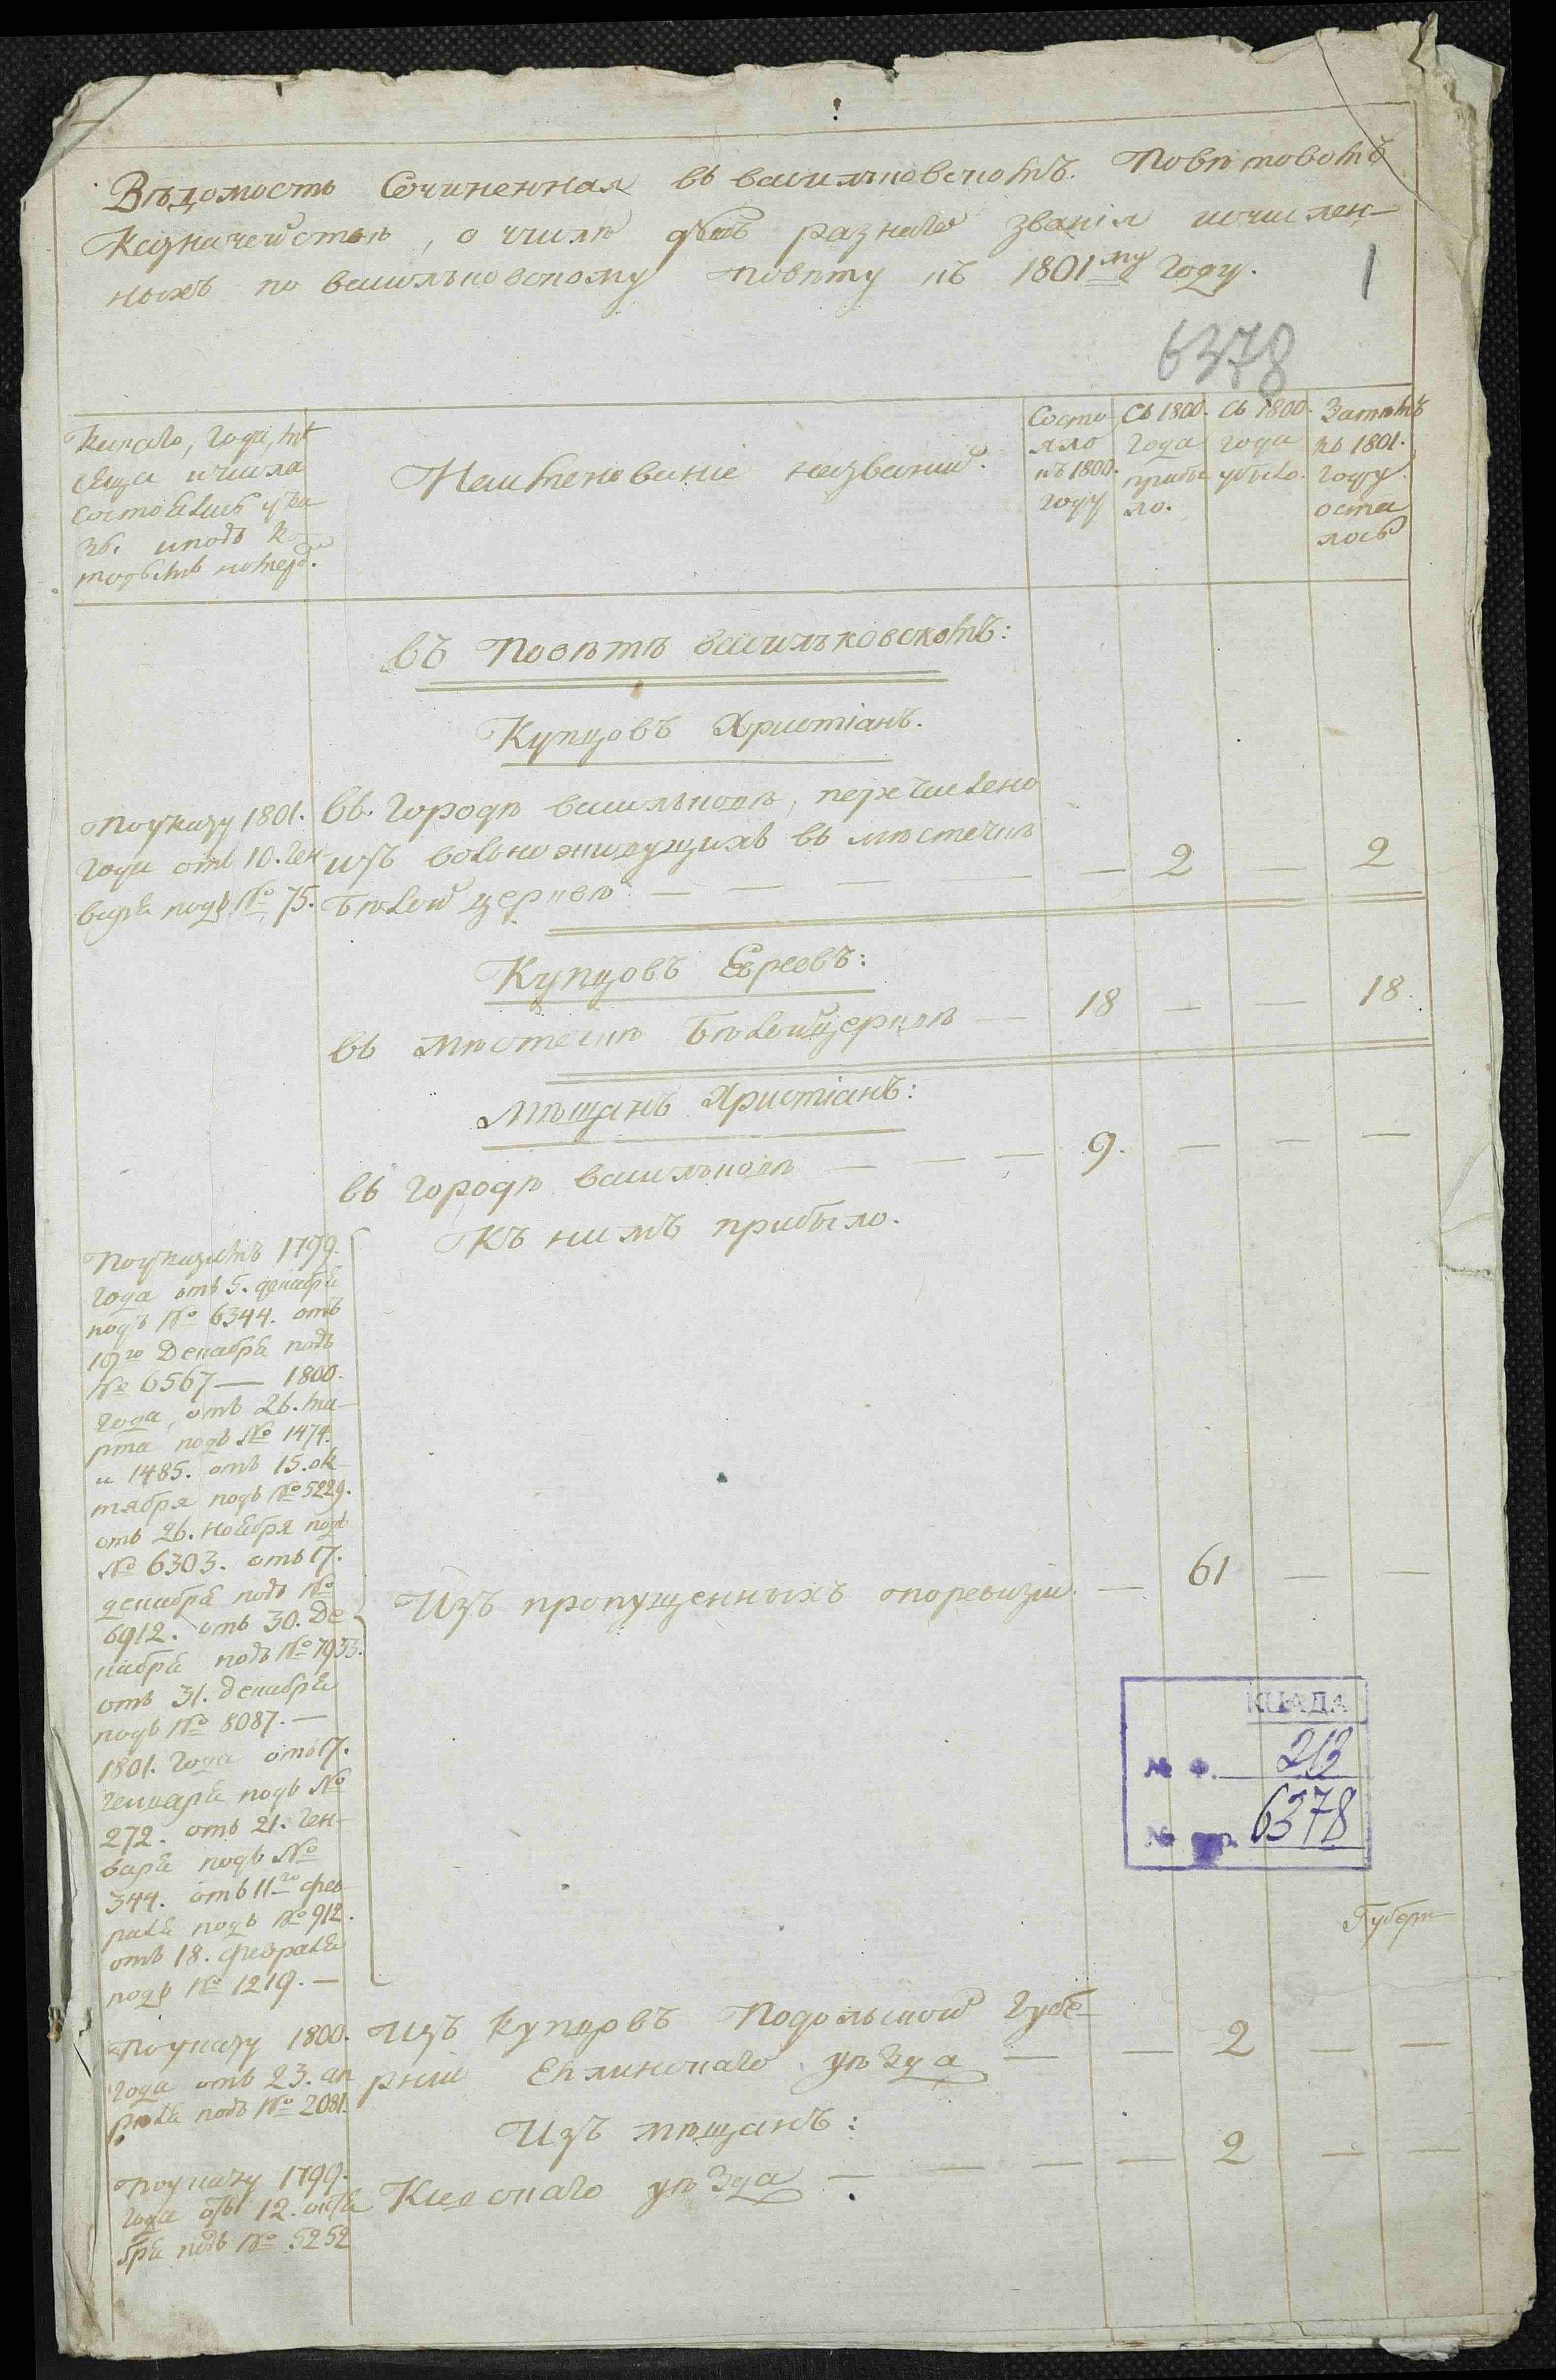 Вѣдомость Сочиненная въ васильковскомъ Повѣтовомъ
Казначействѣ, о числѣ душъ разнаго званія исчислен-
ныхъ по васильковскому повѣту къ 1801му Году.
1
6378
Котораго, Года, мѣ
сяца и числа
состоялись ука
зы. и подъ ко
торымъ номеромъ.
Наименованіе названий.
Состо
яло
къ 1800.
году
Съ 1800.
года
прибы
ло.
Съ 1800.
года
убыло.
Затѣмъ
къ 1801.
году
оста
лось
въ Повѣтѣ васильковскомъ:
Купцовъ Христіанъ.
Поуказу 1801.
Года отъ 10. Ген
варя подъ № 75.
въ Городѣ васильковѣ, перечислено
изъ вольноживущихъ въ мѣстечкѣ
Бѣлой церквѣ — — — — — 2 — 2
Купцовъ Евреевъ:
въ мѣстечкѣ Бѣлойцерквѣ — 18 — — 18.
Мѣщанъ Христіанъ:
въ Городѣ васильковѣ — — — 9. — — —
Къ нимъ прибыло.
Поуказамъ 1799.
Года отъ 5. декабря
подъ № 6344. отъ
19го Декабря подъ
№ 6567 — 1800.
года, отъ 26. ма-
рта подъ № 1474.
и 1485. отъ 15. ок-
тября подъ № 5229.
отъ 26. ноября подъ
№ 6303. отъ 17.
декабря подъ №
6912. отъ 30. Де
кабря подъ № 7933.
отъ 31. декабря
подъ № 8087. —
1801. Года отъ 17.
Генваря подъ №
272. отъ 21. Ген-
варя подъ №
344. отъ 11го фев-
раля подъ № 912.
отъ 18. февраля
подъ № 1219. —
Изъ пропущенныхъ поревизіи — 61 — —
КЦАДА
№ Ф. 213
№ 6378
Губерн
Поуказу 1800.
Года отъ 23. ап
рѣля подъ № 2081.
Изъ купцовъ Подольской Губе-
рніи уѣзда — — 2 — —
Изъ мѣщанъ:
Поуказу 1799.
Года отъ 12. октя
бря подъ № 5252
Кіевскаго уѣзда — — — — 2 — —